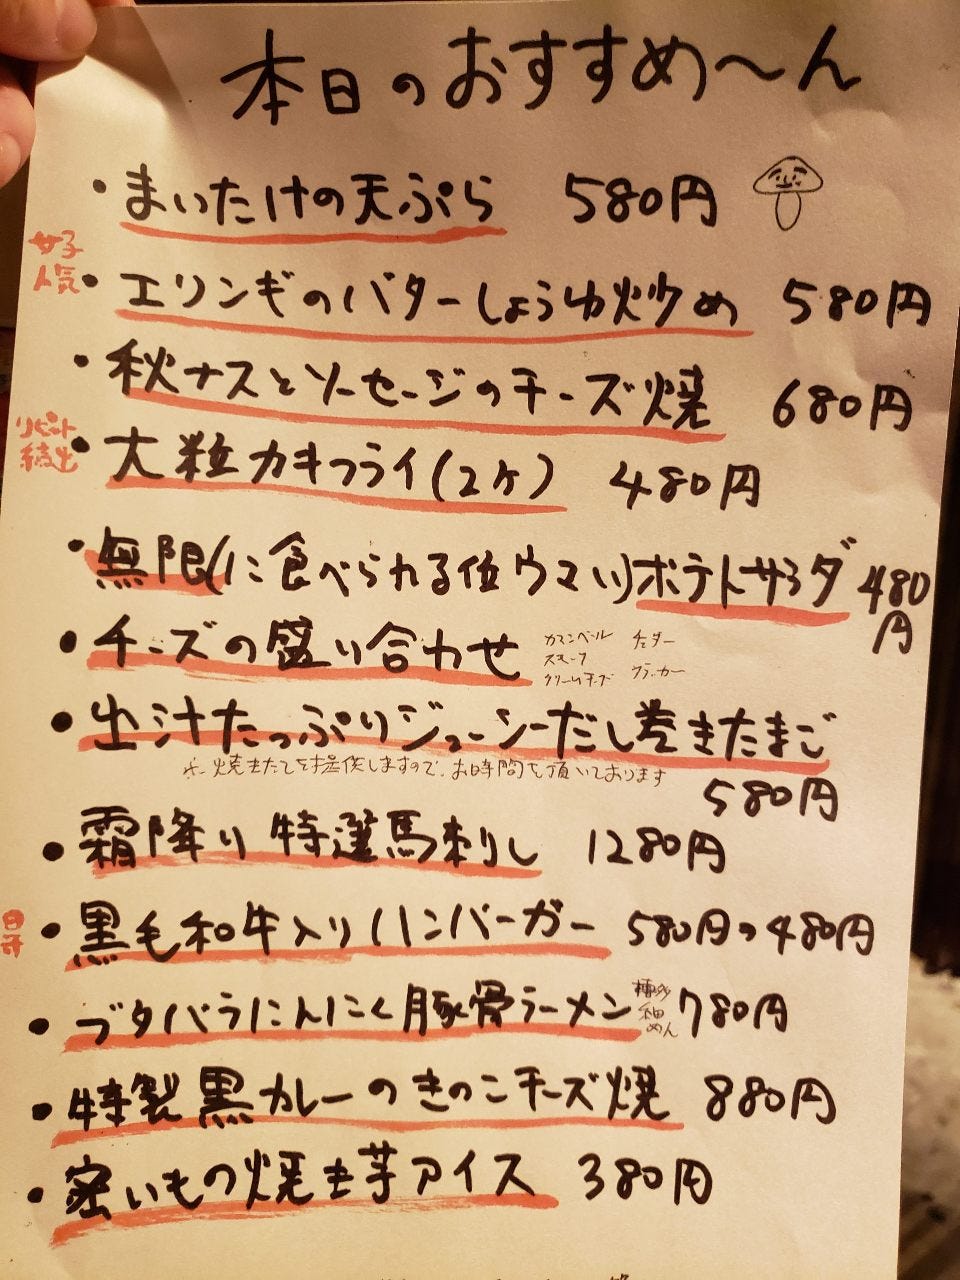 本日のおすすめ〜ん
・まいたけの天ぷら 580円
女子
人気
・エリンギのバターしょうゆ炒め 580円
・秋ナスとソーセージのチーズ焼 680円
リピート
続出
・大粒カキフライ(2ケ) 480円
・無限(に食べられる位ウマい)ポテトサラダ 480
円
・チーズの盛り合わせ
カマンベール チェダー
スモーク
クリームチーズ クラッカー
・出汁たっぷりジューシーだし巻きたまご
※焼きたてを提供しますので、お時間を頂いております
580円
・霜降り特選馬刺し 1280円
・黒毛和牛入りハンバーガー 580円→480円
・ブタバラにんにく豚骨ラーメン 780円
細
めん
・特製黒カレーのきのこチーズ焼 880円
・密いもの焼き芋アイス 380円